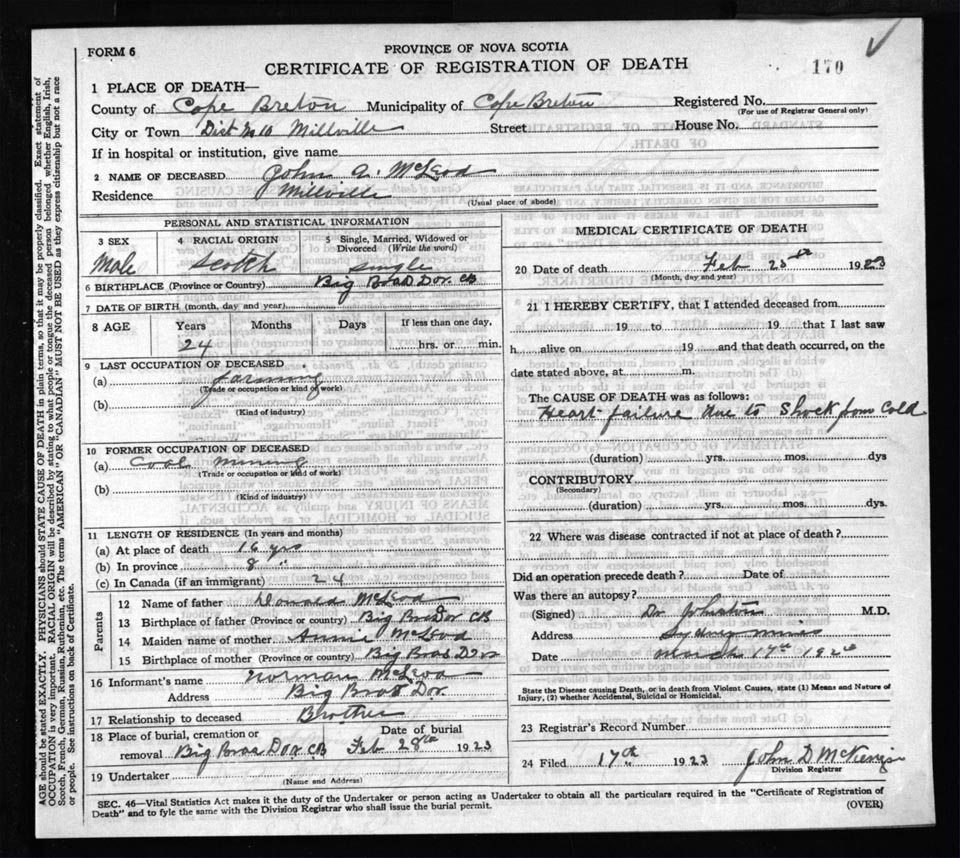 FORM 6
PROVINCE OF NOVA SCOTIA
CERTIFICATE OF REGISTRATION OF DEATH
170
1 PLACE OF DEATH—
County of Cape Breton Municipality of Cape Breton Registered No.
(For use of Registrar General only)
City or Town Dist No 10 Millville Street House No.
If in hospital or institution, give name
2 NAME OF DECEASED John A. McLeod
Residence Millville
(Usual place of abode)
PERSONAL AND STATISTICAL INFORMATION
3 SEX 4 RACIAL ORIGIN 5 Single, Married, Widowed or Divorced (Write the word)
Male Scotch Single
6 BIRTHPLACE (Province or Country) Big Bras Dor. CB
7 DATE OF BIRTH (month, day and year)
8 AGE Years Months Days If less than one day,
24 hrs. or min.
9 LAST OCCUPATION OF DECEASED
(a) farming
(Trade or occupation or kind of work)
(b)
(Kind of industry)
10 FORMER OCCUPATION OF DECEASED
(a) Coal mining
(Trade or occupation or kind of work)
(b)
(Kind of industry)
11 LENGTH OF RESIDENCE (In years and months)
(a) At place of death 16 yrs
(b) In province 8 "
(c) In Canada (if an immigrant) 24
Parents
12 Name of father Donald McLeod
13 Birthplace of father (Province or country) Big Bras Dor CB
14 Maiden name of mother Annie McLeod
15 Birthplace of mother (Province or country) Big Bras Dor
16 Informant's name Norman McLeod
Address Big Bras Dor.
17 Relationship to deceased Brother
18 Place of burial, cremation or Date of burial
removal Big Bras Dor CB Feb 28th 1923
19 Undertaker
(Name and Address)
MEDICAL CERTIFICATE OF DEATH
20 Date of death Feb 1923
(Month, day and year)
21 I HEREBY CERTIFY, that I attended deceased from
19 to 19 that I last saw
h alive on 19 and that death occurred, on the
date stated above, at m.
The CAUSE OF DEATH was as follows:
Heart failure due to Shock from Cold
(duration) yrs. mos. dys
CONTRIBUTORY
(Secondary)
(duration) yrs. mos. dys.
22 Where was disease contracted if not at place of death?
Did an operation precede death? Date of
Was there an autopsy?
(Signed) Dr Johnston M.D.
Address Sydney Mines
Date March 17th
State the Disease causing Death, or in death from Violent Causes, state (1) Means and Nature of
Injury, (2) whether Accidental, Suicidal or Homicidal.
23 Registrar's Record Number
24 Filed 17th 1923 John D McKenzie
Division Registrar
SEC. 46—Vital Statistics Act makes it the duty of the Undertaker or person acting as Undertaker to obtain all the particulars required in the "Certificate of Registration of
Death" and to fyle the same with the Division Registrar who shall issue the burial permit.
(OVER)
AGE should be stated EXACTLY. PHYSICIANS should STATE CAUSE OF DEATH in plain terms, so that it may be properly classified. Exact statement of
OCCUPATION is very important. RACIAL ORIGIN will be described by stating to what people or tongue the deceased person belonged whether English, Irish,
Scotch, French, German, Russian, Ruthenian, etc. The terms "AMERICAN" OR "CANADIAN" MUST NOT BE USED as they express citizenship but not a race
or people. See instructions on back of Certificate.